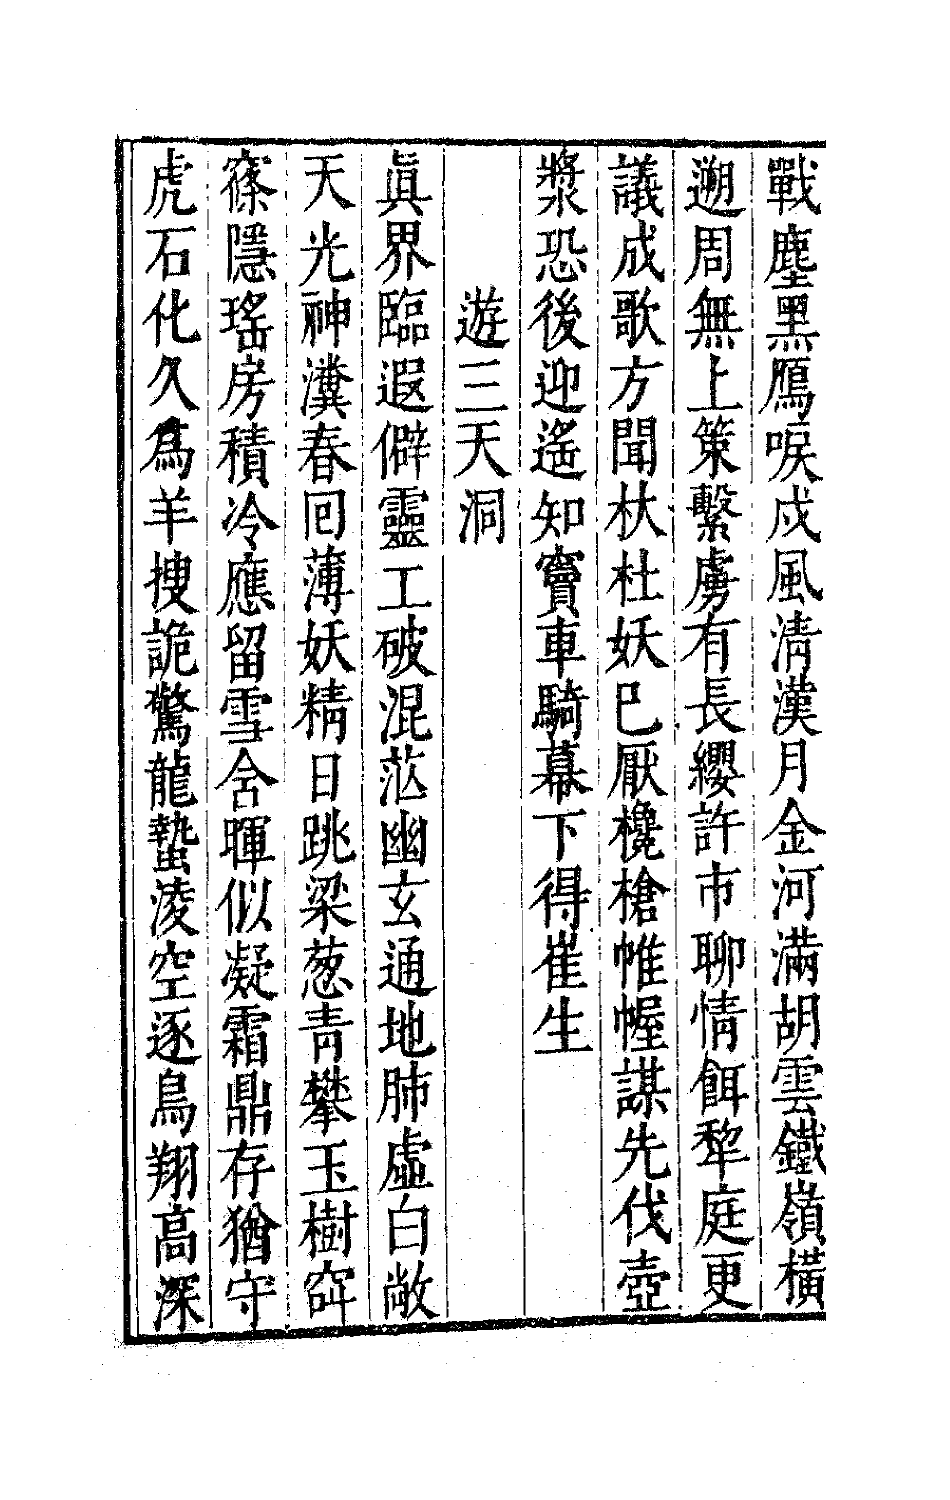 戰塵黑鴈唳戍風清漢月金河滿胡雲鐵嶺橫
遡周無上策繫虜有長纓許市聊情餌犂庭更
議成歌方聞杕杜妖已厭欃槍帷幄謀先伐壺
漿恐後迎遙知竇車騎幕下得崔生
遊三天洞
眞界臨遐僻靈工破混茫幽玄通地肺虛白敞
天光神瀵春回薄妖精日跳梁葱青攀玉樹窅
窱隱瑤房積冷應留雪含暉似凝霜鼎存猶守
虎石化久爲羊搜詭驚龍蟄淩空逐鳥翔高深